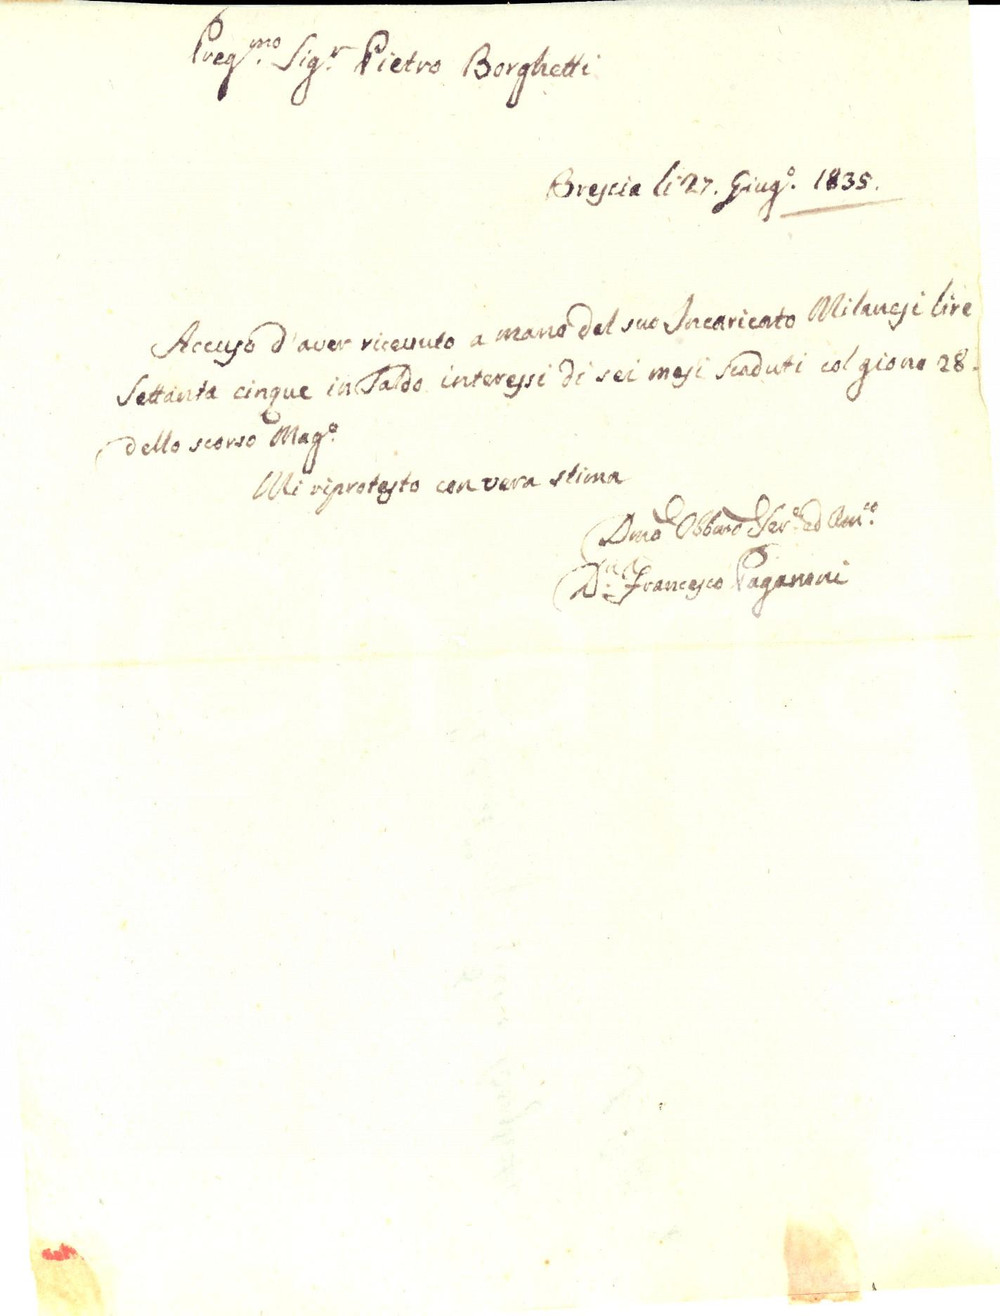 Preg.mo Sig.r Pietro Borghetti
Brescia li 27. Giug.o 1835.
Accuso d'aver ricevuto a mano del suo Incaricato Milanesi lire
Settanta cinque in Saldo interessi di sei mesi scaduti col giono 28.
dello scorso Mag.o
Mi riprotesto con vera stima
Dmo Obbmo Ser.e ed Am.co
D.n Francesco Paganoni